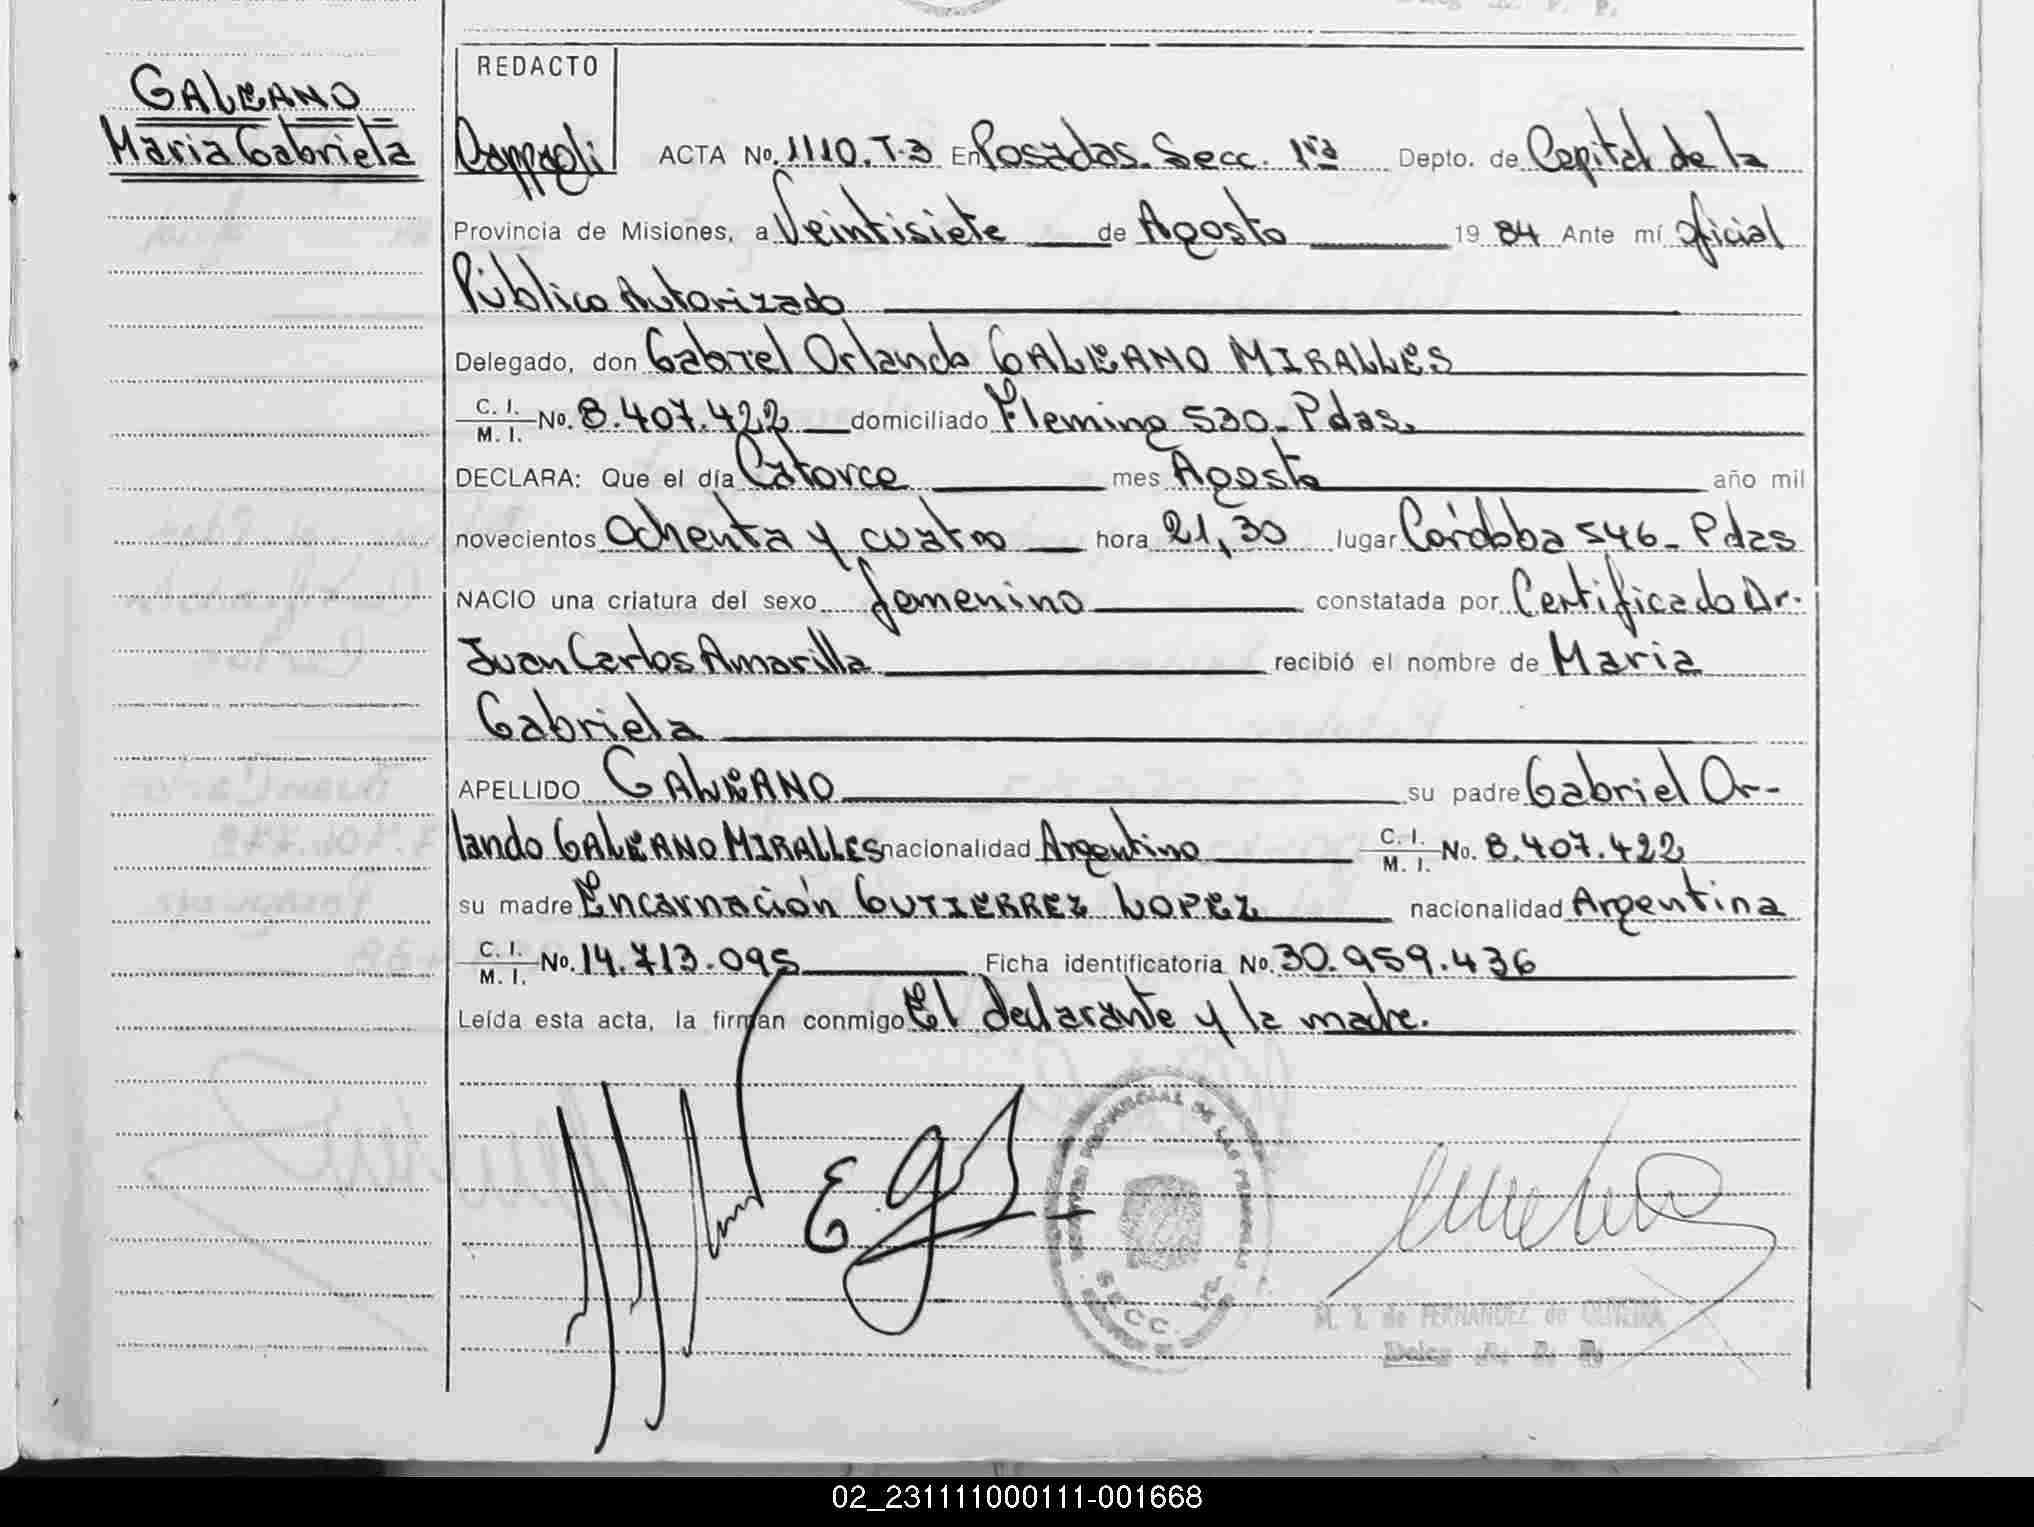 GALEANO
Maria Gabriela
REDACTO
Coppoli ACTA No. 1110. T.3 En Posadas. Secc. 1ra Depto. de Capital de la
Provincia de Misiones, a Veintisiete de Agosto 19 84 Ante mí oficial
Público Autorizado
Delegado, don Gabriel Orlando GALEANO MIRALLES
C. I. M. I. No. 8.407.422 domiciliado Fleming 530_ Pdas.
DECLARA: Que el día Catorce mes Agosto año mil
novecientos Ochenta y cuatro hora 21,30 lugar Córdoba 546_ Pdas
NACIO una criatura del sexo femenino constatada por Certificado Dr.
Juan Carlos Amarilla recibió el nombre de Maria
Gabriela
APELLIDO GALEANO su padre Gabriel Or-
lando GALEANO MIRALLES nacionalidad Argentino C. I. M. I. No. 8.407.422
su madre Encarnación GUTIERREZ LOPEZ nacionalidad Argentina
C. I. M. I. No. 14.713.095 Ficha identificatoria No. 30.959.436
Leída esta acta, la firman conmigo El declarante y la madre.
PROVINCIAL DE LAS PERSONAS
SECC. 1ra
M. I. de FERNANDEZ de OLIVEIRA
02_231111000111-001668